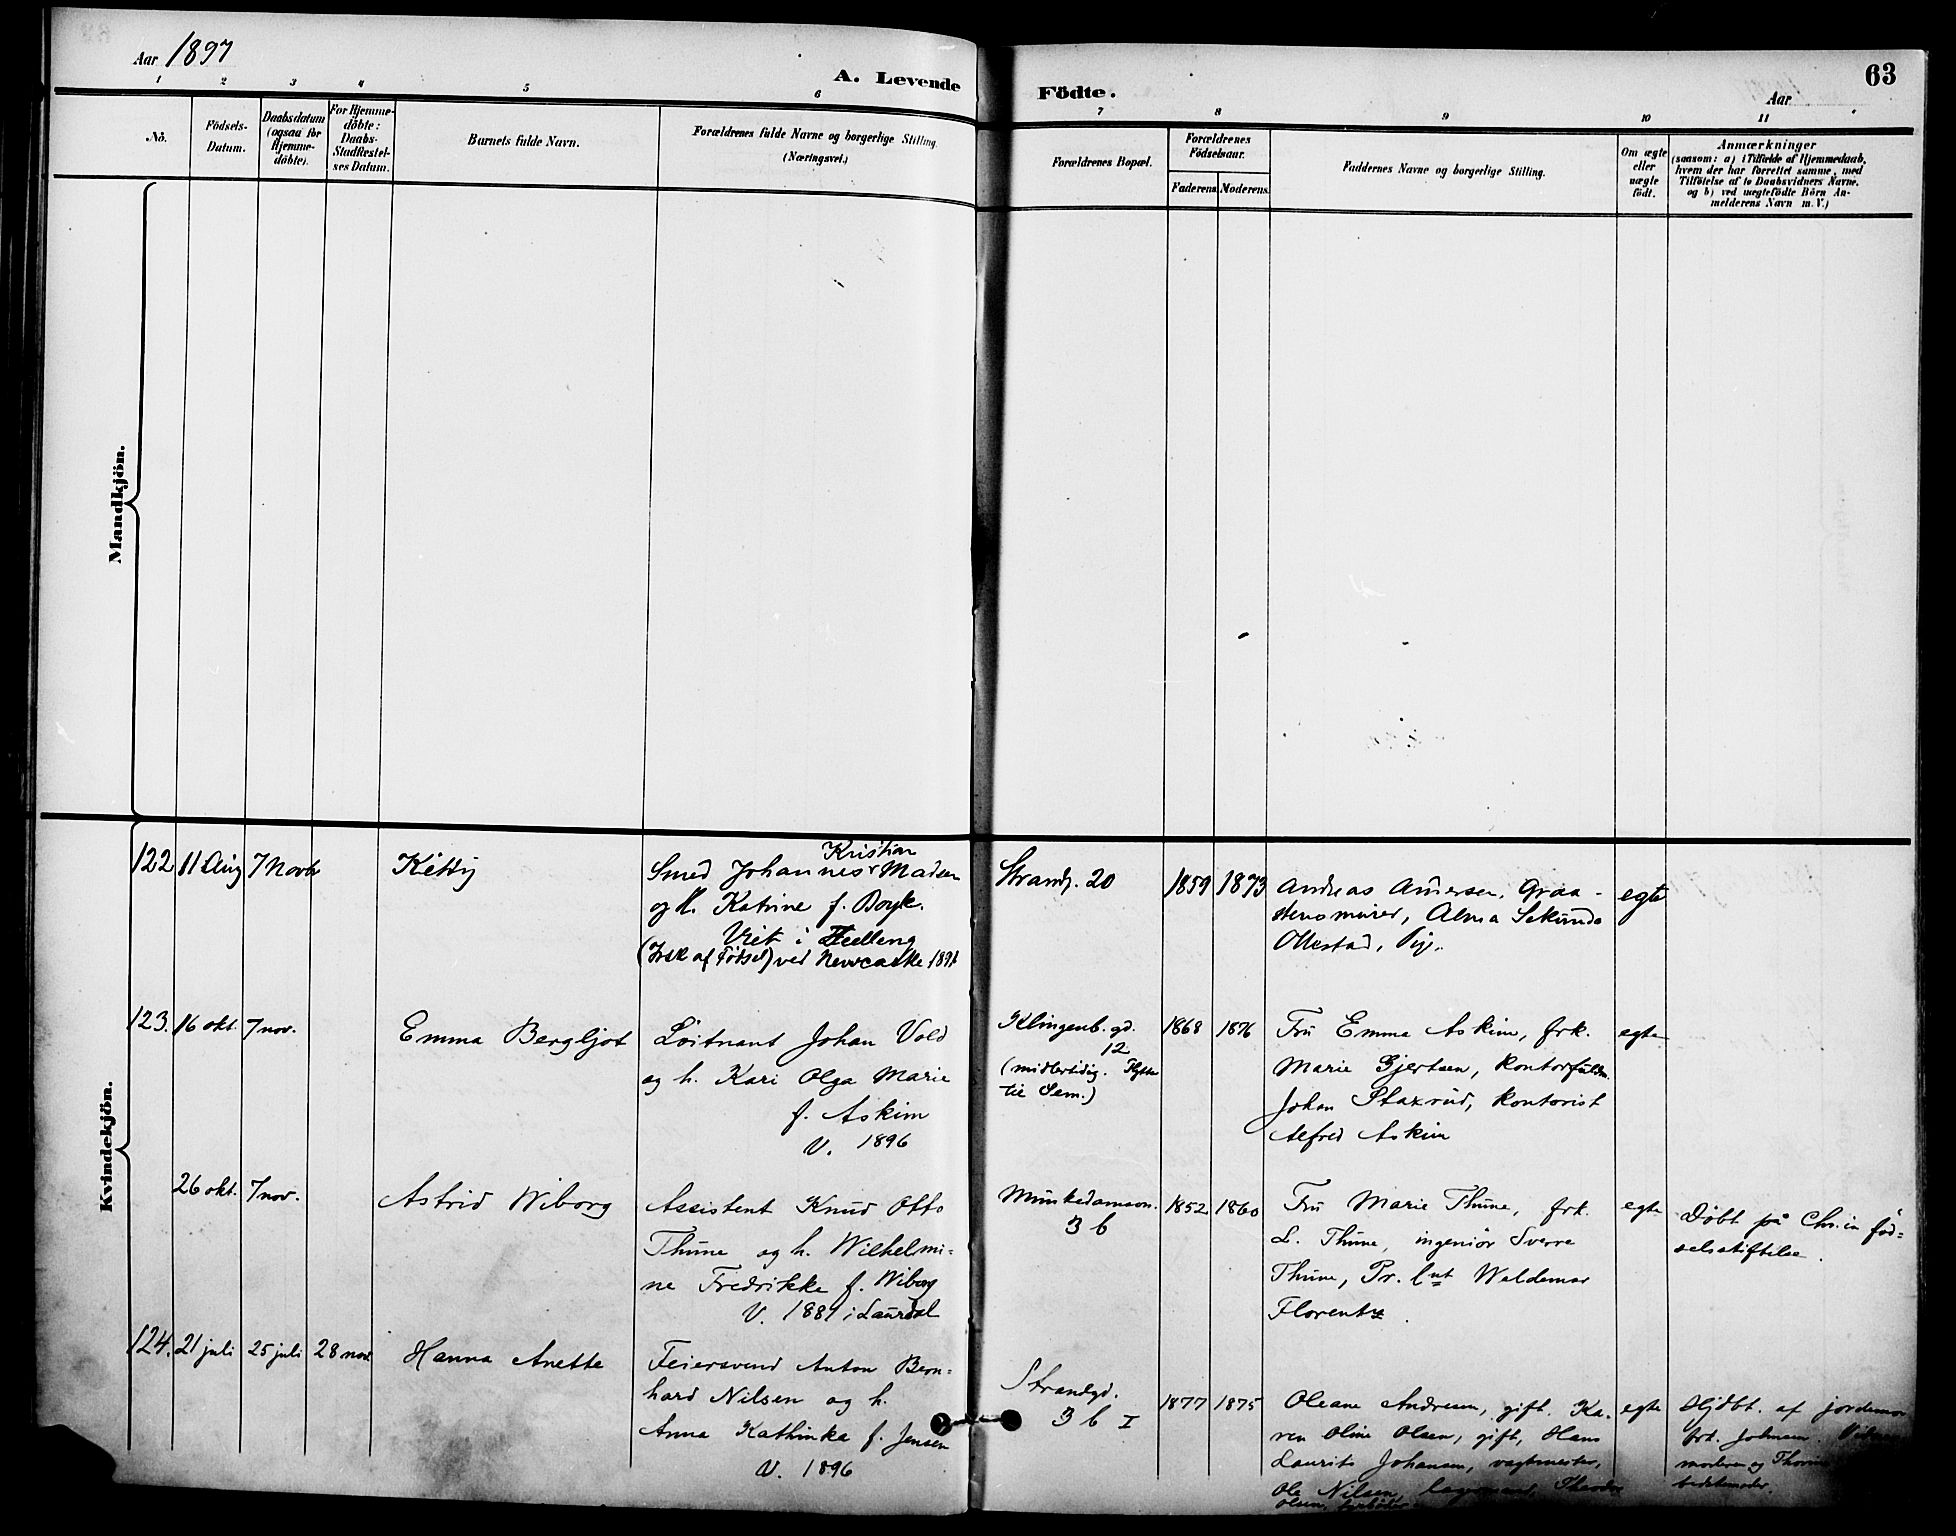 Aar 1897
A. Levende
Födte.
63
Aar
1 2 3 4 5 6 7 8 9 10 11
No.
Födsels-
Datum.
Daabsdatum
(ogsaa for
Hjemme-
döbte).
For Hjemme-
döbte:
Daabs-
Stadfæstel-
ses Datum.
Barnets fulde Navn.
Forældrenes fulde Navne og borgerlige Stilling.
(Næringsvei.)
Forældrenes Bopæl.
Forældrenes
Födselsaar.
Faderens. Moderens.
Faddernes Navne og borgerlige Stilling.
Om ægte
eller
uægte
födt.
Anmærkninger
(saasom: a) i Tilfælde af Hjemmedaab,
hvem der har forrettet samme, med
Tilföielse af to Daabsvidners Navne,
og b) ved uægtefödte Börn An-
melderens Navn m. V.)
Mandkjön.
Kvindekjön.
122 11 Aug 7 Novb
Kitty
Kristian
Smed Johannes Madsen
og H. Katrine f. Boyle.
Viet i
(Irsk af Födsel) ved Newcastle
Strandg. 20
1859 1873
Andreas Andersen, Graa-
stensmurer, Alma Sekunda
Ollestad, Pige.
egte
123. 16 okt. 7 nov.
Emma Bergljot
Löitnant Johan Vold
og h. Kari Olga Marie
f. Askim
V. 1896
Klingenb. gd.
12
(midlertidig. Flytter
til Sem.)
1868 1876
Fru Emma Askim, frk.
Marie Gjertsen, kontorfuldm.
Johan Staxrud, kontorist
Alfred Askim
egte
26 okt. 7 nov.
Astrid Wiborg
Assistent Knud Otto
Thune og h. Wilhelmi-
ne Fredrikke f. Wiborg
V. 1881 i Laurdal
Munkedamsv.
3 b
1852 1860
Fru Marie Thune, frk.
L. Thune, ingeniör Sverre
Thune, Pr. lnt Waldemar
Florentz.
egte
Döbt på Chr.ia föd-
selsstiftelse.
124. 21 juli 25 juli 28 nov
Hanna Anette
Feiersvend Anton Bern-
hard Nilsen og h.
Anna Kathinka f. Jensen
V. 1896
Strandgd.
3 b I
1877 1875
Oleane Andresen, gift. Ka-
ren Oline Olsen, gift, Hans
Laurits Johansen, vagtmester,
Ole Nilsen, Theodor
Olsen,
egte
Hjdbt. af jordemor
frk. Johnsen.
moderen og
bedstemoder.